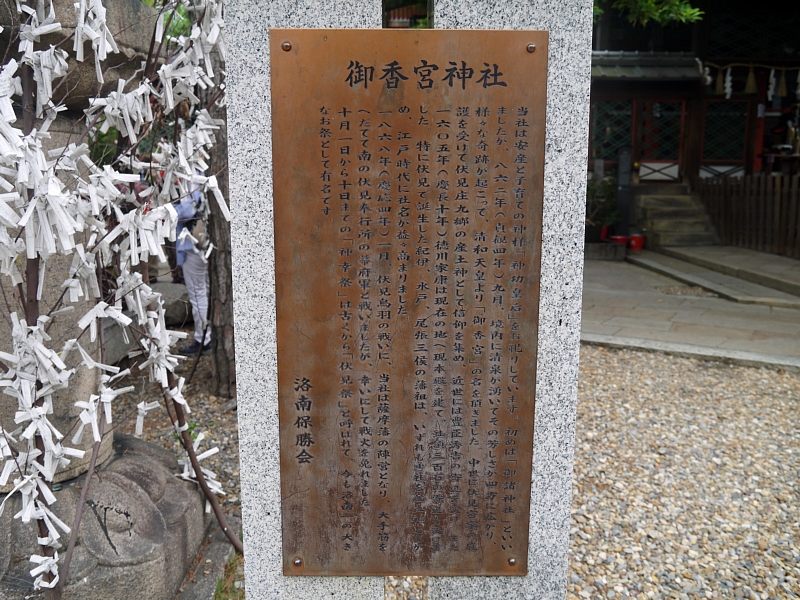 御香宮神社
当社は安産と子育ての神様「神功皇后」をお祀りしています。初めは「御諸神社」といい
ましたが、八六二年(貞観四年)九月、境内に清泉が湧いてその芳しさが四方に広がり、
様々な奇跡が起こって、清和天皇より「御香宮」の名を頂きました 中世に伏見宮家の庇
護を受けて伏見庄九郷の産土神として信仰を集め、近世には豊臣秀吉の
一六〇五年(慶長十年)徳川家康は現在の地(現本殿を建て、社領三百石
した 特に伏見で誕生した紀伊、水戸、尾張三侯の藩祖は、いずれも当社を
め、江戸時代に社名が益々高まりました
一八六八年(慶応四年)一月、伏見鳥羽の戦いに、当社は薩摩藩の陣営となり、大手筋を
へだてて南の伏見奉行所の幕府軍と戦いましたが、幸いにして戦火を免れました
十月一日から十日までの「神幸祭」は古くから「伏見祭」と呼ばれて、今も洛南一の大き
なお祭として有名です
洛南保勝会